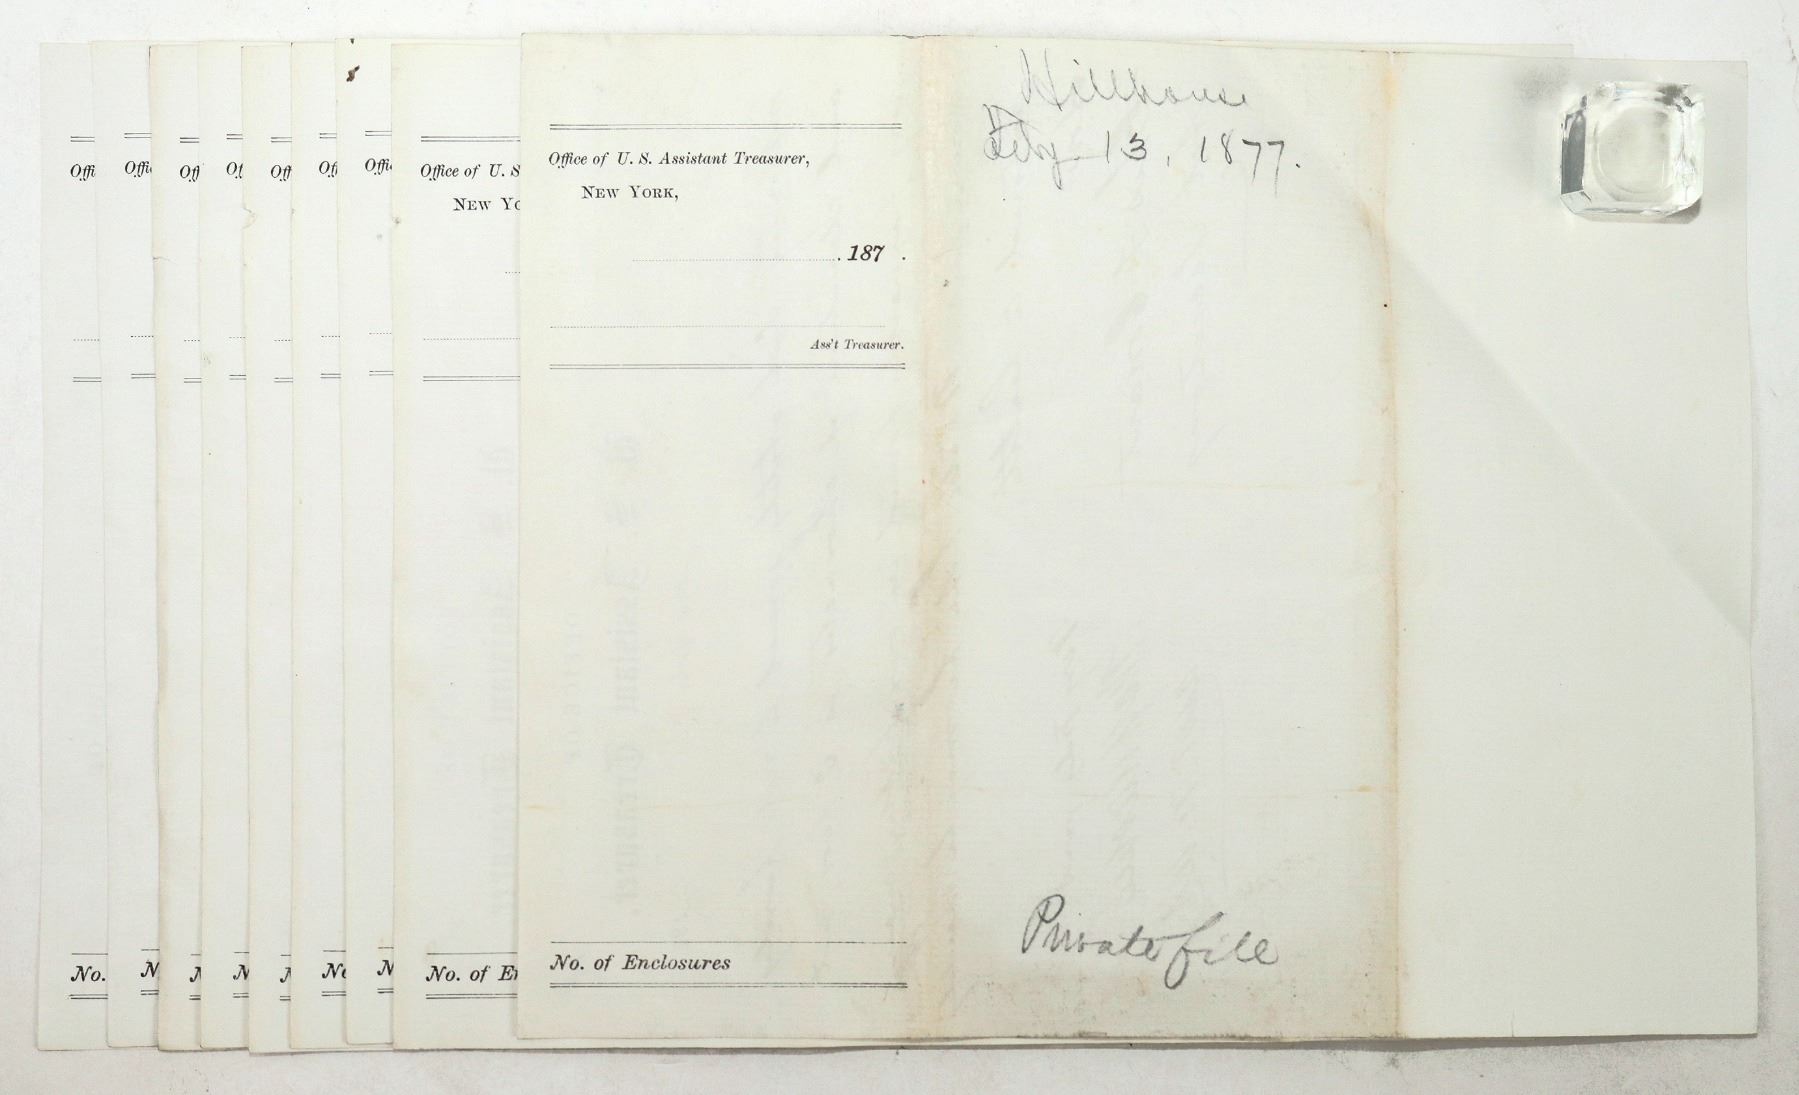 Offi
Offi
Off
Of
Off
Off
Offi
Office of U. S
NEW YO
Office of U. S. Assistant Treasurer,
NEW YORK,
187 .
Ass't Treasurer.
No.
N
N
N
N
No
N
No. of En
No. of Enclosures
Hillhouse
Feby 13, 1877.
Private file